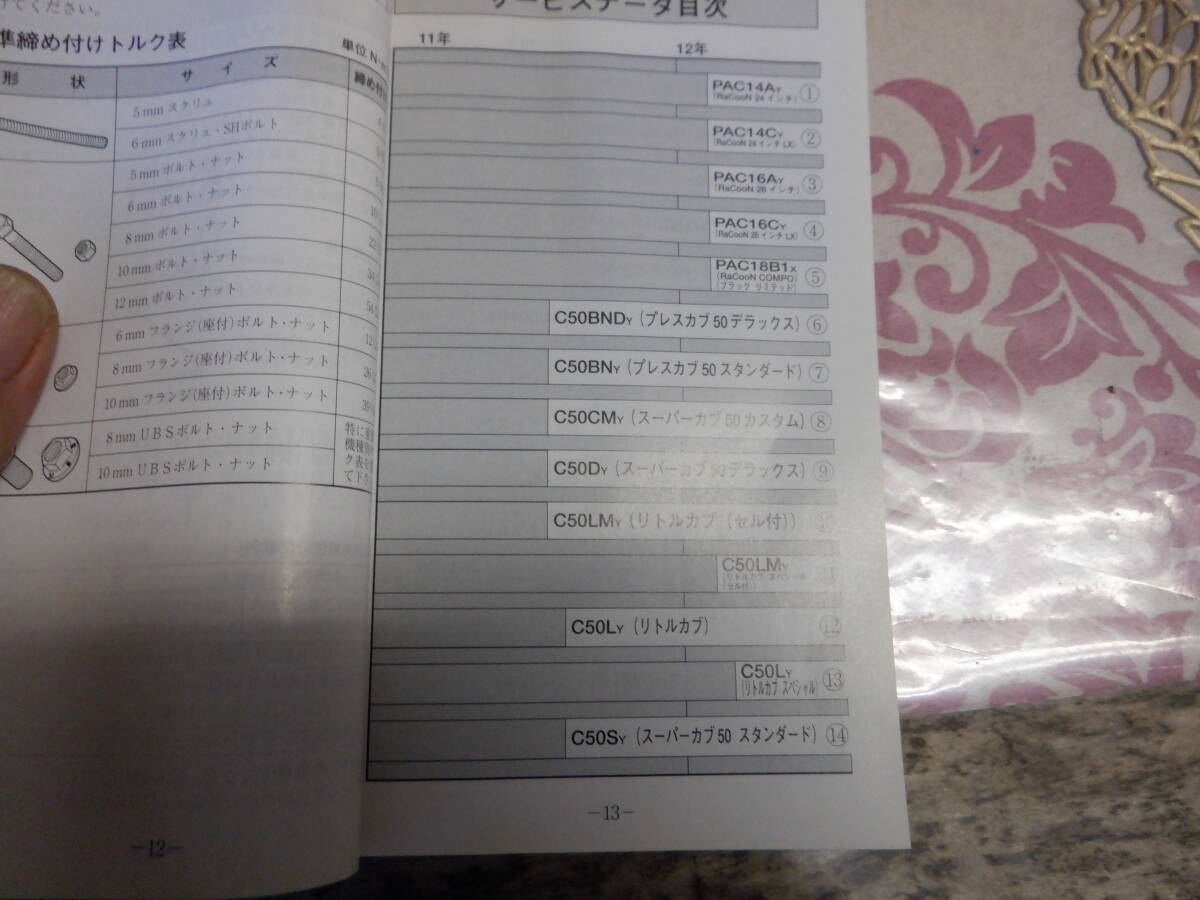 けてください。
準締め付けトルク表
単位 N·m
形 状
サ イ ズ
締め付け
5mm スクリュ
6mm スクリュ・SHボルト
5mm ボルト・ナット
6mm ボルト・ナット
8mm ボルト・ナット
10mm ボルト・ナット
12mm ボルト・ナット
6mm フランジ(座付)ボルト・ナット
8mm フランジ(座付)ボルト・ナット
10mm フランジ(座付)ボルト・ナット
8mm UBSボルト・ナット
10mm UBSボルト・ナット
特に
機種別
ク表を
て下さ
－12－
サービスデータ目次
11年
12年
PAC14AY ①
(RaCooN 24 インチ)
PAC14CY ②
(RaCooN 24 インチ LX)
PAC16AY ③
(RaCooN 26 インチ)
PAC16CY ④
(RaCooN 26 インチ LX)
PAC18B1X ⑤
(RaCooN COMPO)
(ブラック リミテッド)
C50BNDY (プレスカブ50デラックス) ⑥
C50BNY (プレスカブ50スタンダード) ⑦
C50CMY (スーパーカブ50カスタム) ⑧
C50DY (スーパーカブ50デラックス) ⑨
C50LMY (リトルカブ (セル付)) ⑩
C50LMY ⑪
(リトルカブ スペシャル
(セル付))
C50LY (リトルカブ) ⑫
C50LY ⑬
(リトルカブ スペシャル)
C50SY (スーパーカブ50 スタンダード) ⑭
－13－